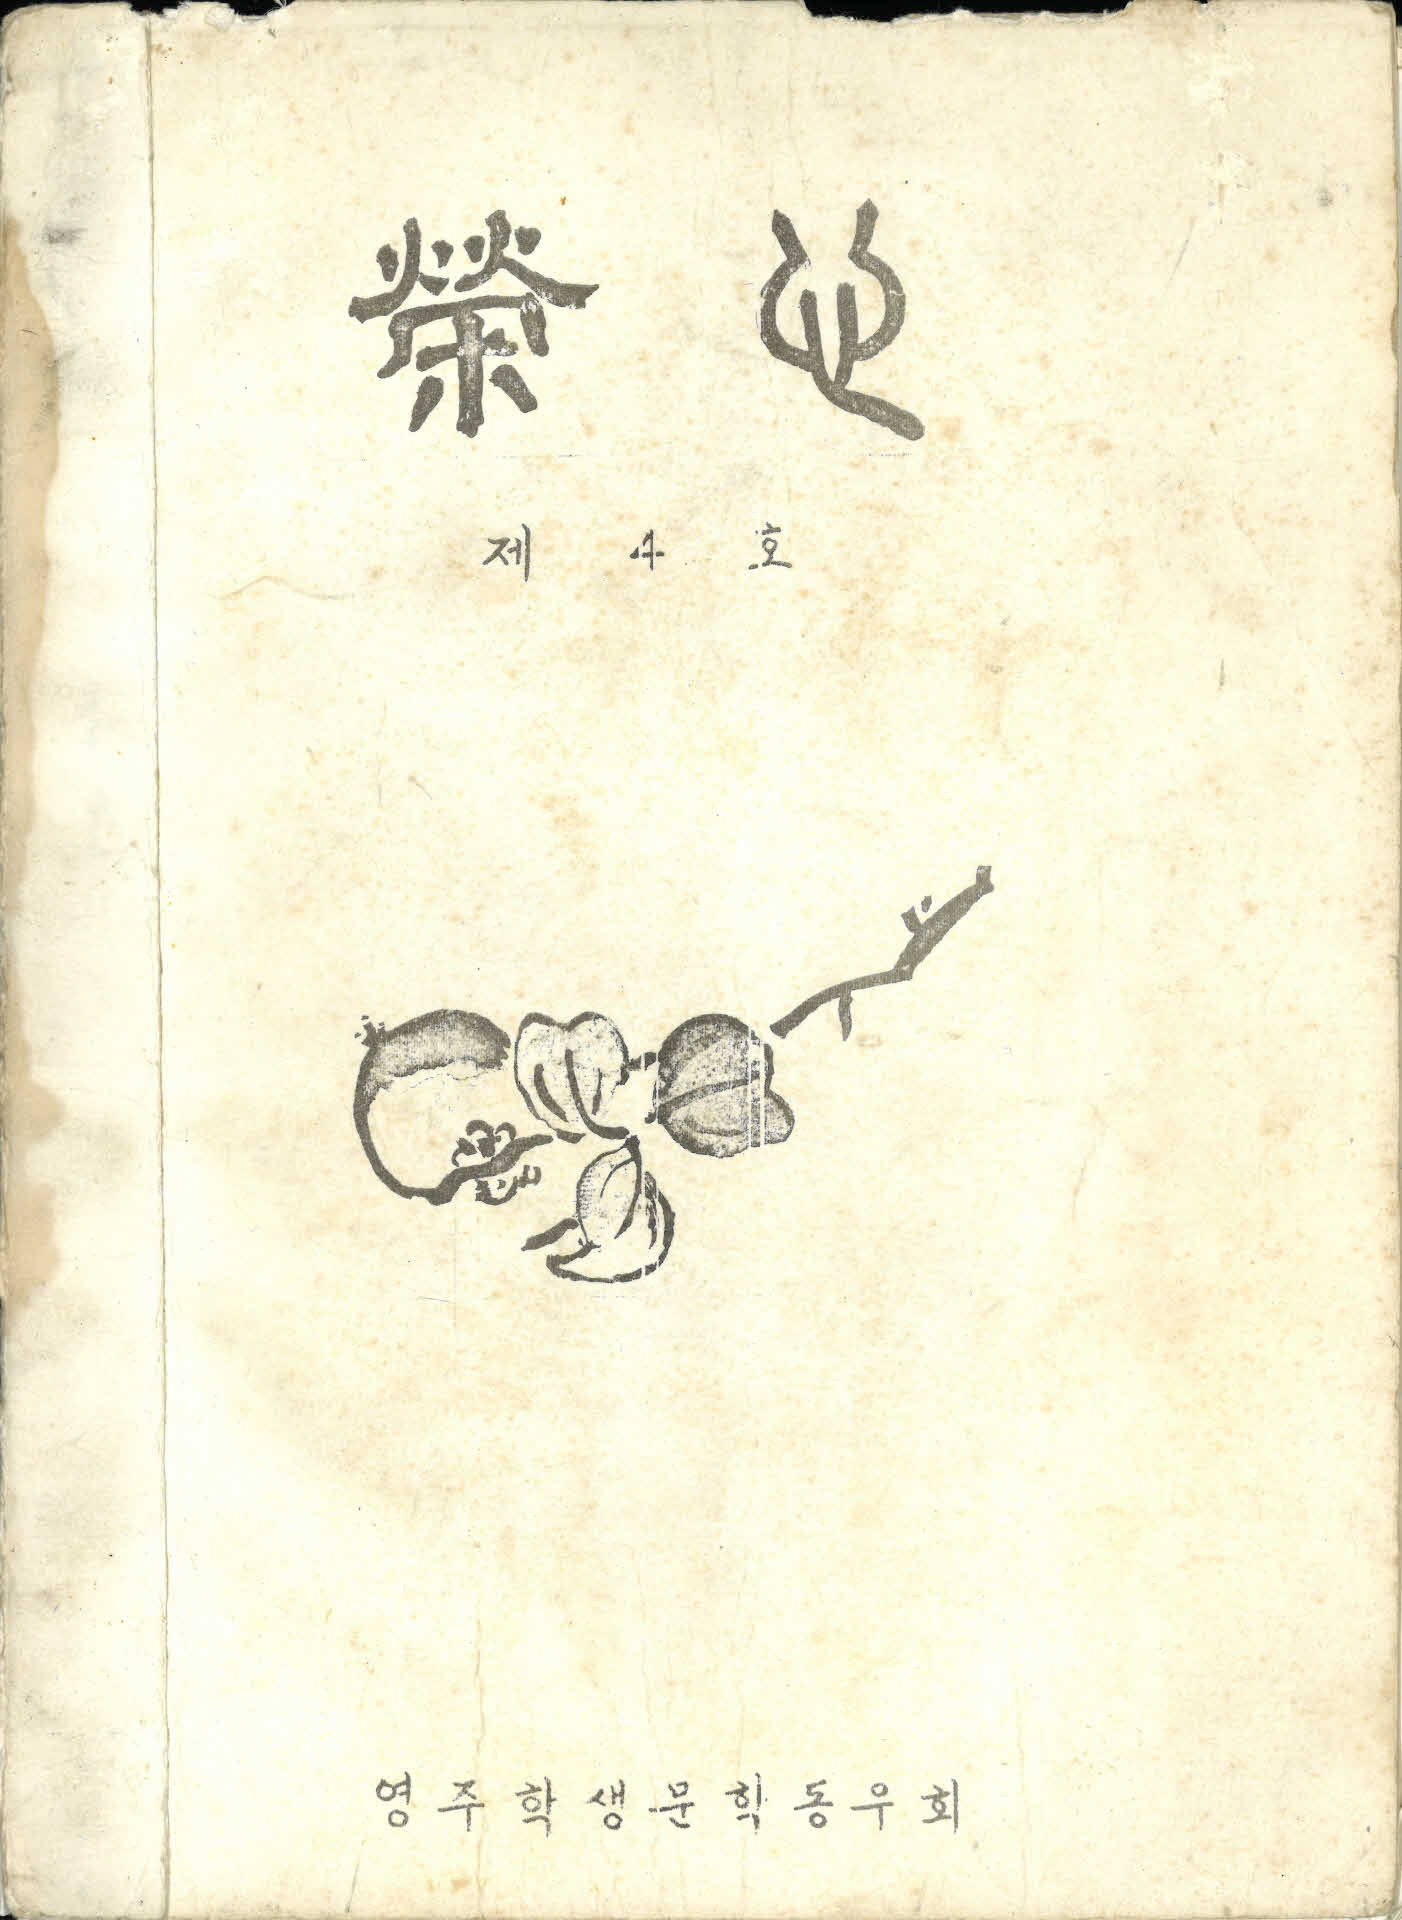 榮
제 4 호
영주학생문학동우회